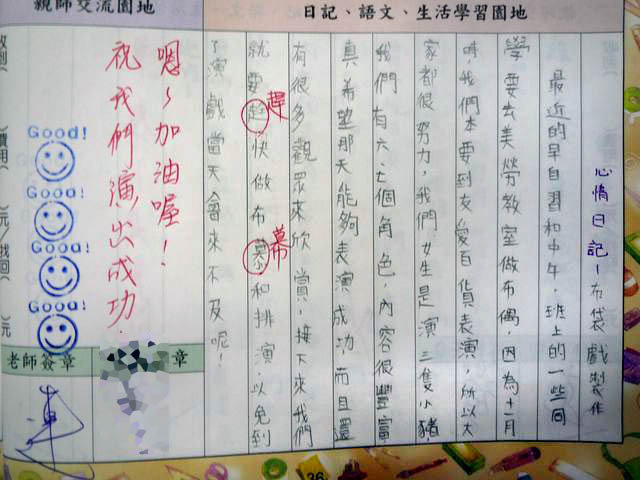 日記、語文、生活學習園地
親師交流園地
心情日記—布袋戲製作
最近的早自習和中午,班上的一些同
學要去美勞教室做布偶,因為十一月
時,我們本要到友愛百貨表演,所以大
家都很努力,我們女生是演三隻小豬
我們有六、七個角色,內容很豐富
真希望那天能夠表演成功,而且還
有很多觀眾來欣賞,接下來我們
就要赶快做布慕和排演,以免到
了演戲當天會來不及呢!
趕
幕
嗯~加油喔!
祝我們演出成功.
Good!
Good!
Good!
Good!
老師簽章
章
元
元
36